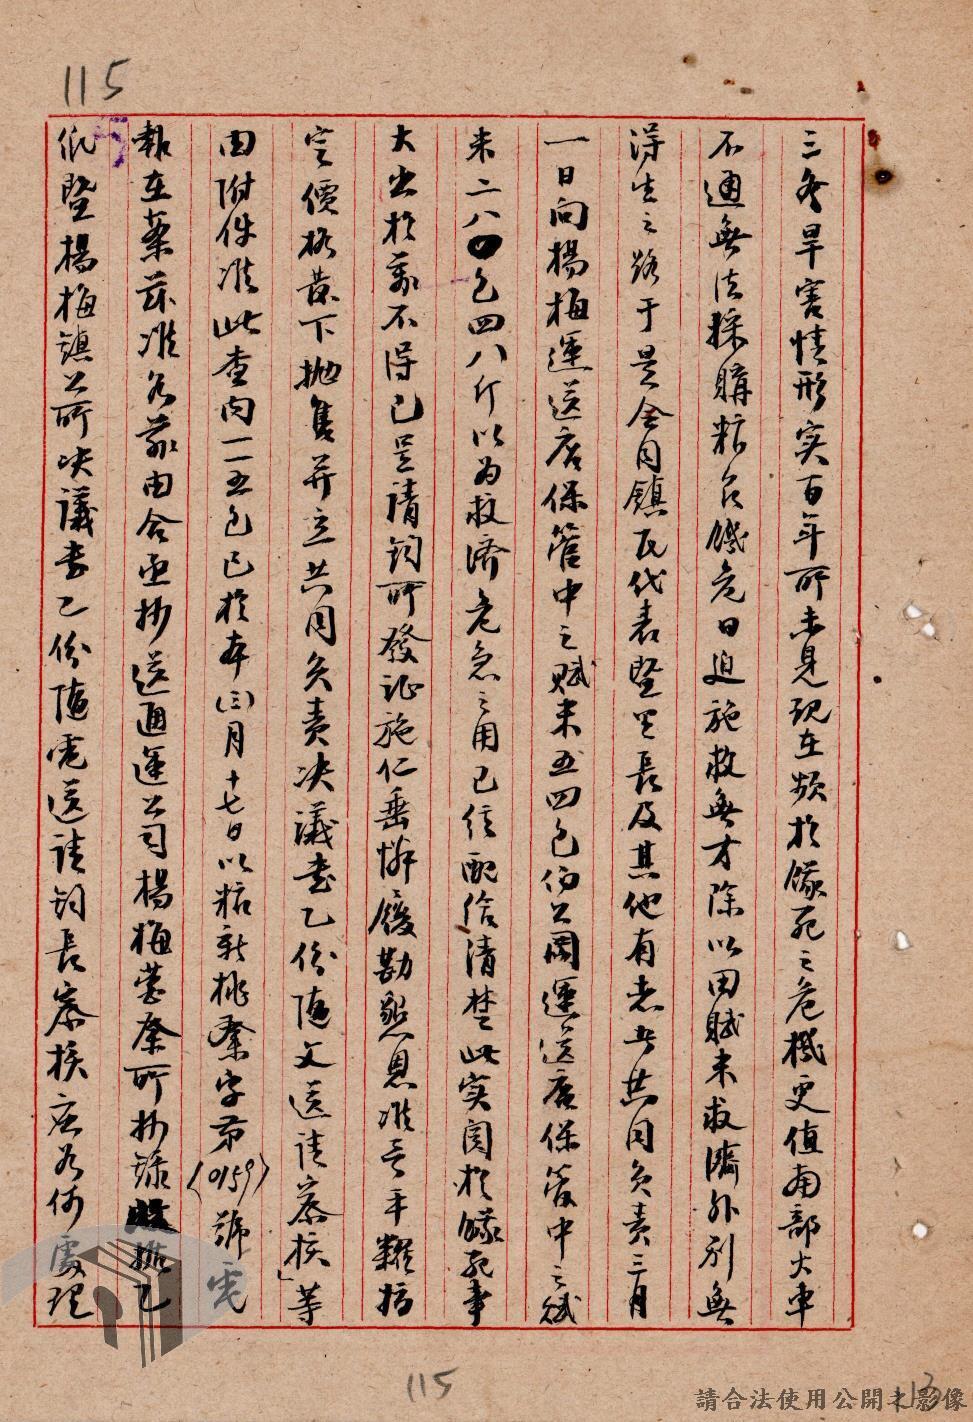 115
三冬旱害情形实百年所未見現在瀕於餓死之危機更值南部大車
不通無法採購粮食飢危日迫施救無才除以田賦米救濟外別無
得生之路于是会同鎮民代表暨里長及其他有志者共同負責三月
一日向楊梅運送店保管中之賦米五四包仍公閣運送店保管中之賦
米二八0包四八斤以為救濟危急之用已經配給清楚此实因於餓死事
大出於萬不得已呈請鈞所發証施仁垂憐緩勘懇恩准予平糶按
定價格最下拋售并立共同負責決議書乙份隨文送請察核」等
由附件准此查内一一五包已於本(三)月十七日以粮新桃參字第(0159)號電
報在案茲准前由合亟抄送通運公司楊梅營業所抄録批乙
纸暨楊梅鎮公所決議書乙份隨電送請鈞長察核应如何處理
115
113
請合法使用公開之影像